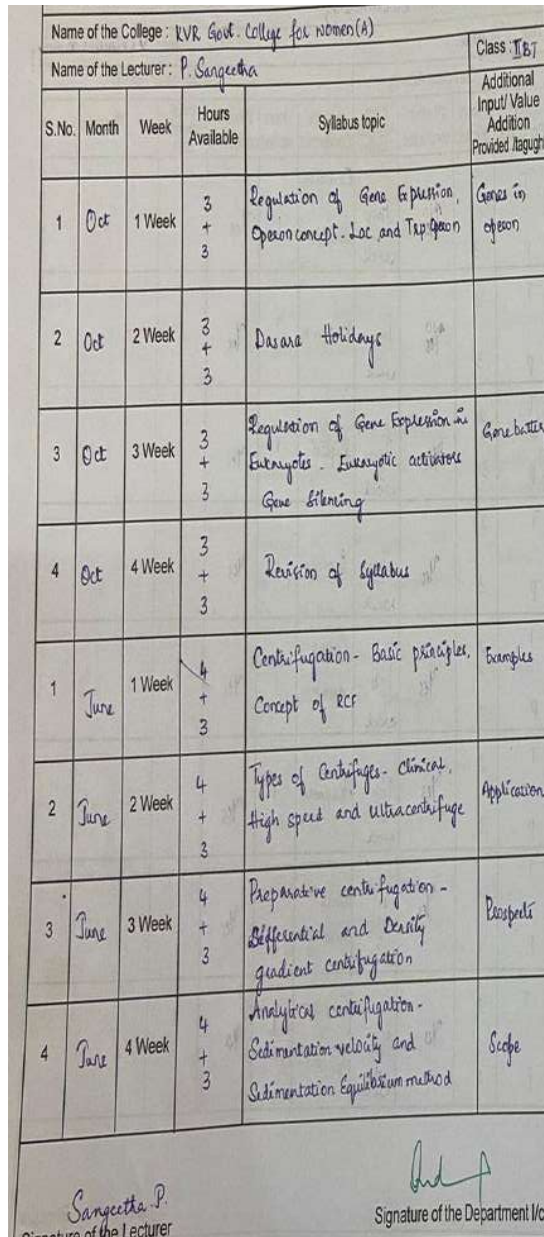 Name of the College : KVR Govt. College for women(A)
Class : II BT
Name of the Lecturer : P. Sangeetha
S.No. Month Week Hours Available Syllabus topic Additional Input/ Value Addition Provided /tagugh
1 Oct 1 Week 3 + 3 Regulation of Gene Expression, Genes in
Operon concept. Lac and Trp operon operon
2 Oct 2 Week 3 + 3 Dasara Holidays
3 Oct 3 Week 3 + 3 Regulation of Gene Expression in
Eukaryotes. Eukaryotic activators
Gene Silencing
4 Oct 4 Week 3 + 3 Revision of Syllabus
1 June 1 Week 4 + 3 Centrifugation - Basic principles, Examples
Concept of RCF
2 June 2 Week 4 + 3 Types of Centrifuges - Clinical, Application
High speed and ultracentrifuge
3 June 3 Week 4 + 3 Preparative centrifugation - Prospects
Differential and Density
gradient centrifugation
4 June 4 Week 4 + 3 Analytical centrifugation - Scope
Sedimentation velocity and
Sedimentation Equilibrium method
Sangeetha P.
Signature of the Lecturer
Signature of the Department I/c